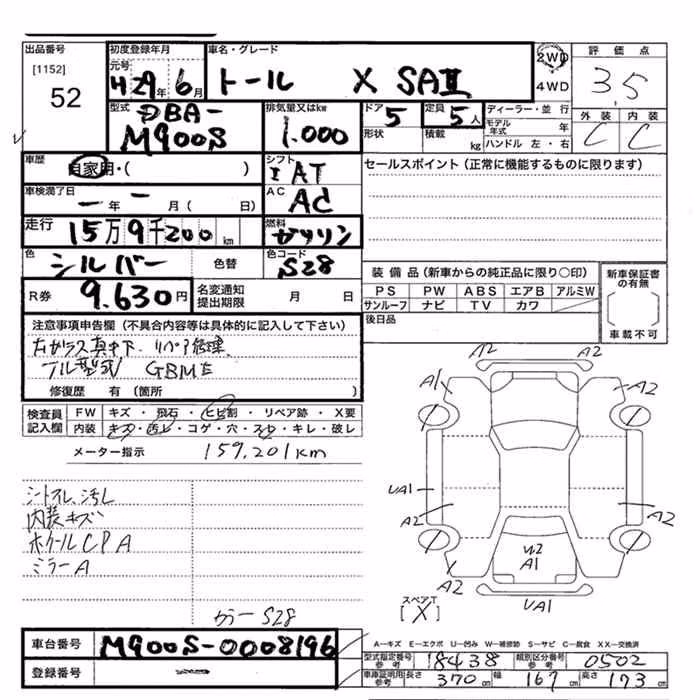 出品番号
[1152]
52
初度登録年月
元号
H29年6月
車名・グレード
トール X SAⅢ
2WD
4WD
評価点
3.5
外装 内装
C C
型式
DBA-
M900S
排気量又はkw
1.000
ドア
5
形状
定員
5人
積載
kg
ディーラー・並行
モデル年式 年
ハンドル 左・右
車歴
自家用・( )
シフト
I AT
セールスポイント(正常に機能するものに限ります)
車検満了日
ー年ー月( 日)
AC
AC
走行
15万9千200km
燃料
ガソリン
色
シルバー
色替
色コード
S28
装備品(新車からの純正品に限り〇印)
PS PW ABS エアB アルミW
サンルーフ ナビ TV カワ
後日品
新車保証書の有無
車載不可
R券
9.630円
名変通知提出期限
月 日
注意事項申告欄(不具合内容等は具体的に記入して下さい)
リペア修理
修復歴 有(箇所 )
検査員記入欄
FW キズ・飛石・ヒビ割・リペア跡・X要
内装 キズ・汚レ・コゲ・穴・スレ・キレ・破レ
メーター指示
159,201km
シートスレ、汚レ
内装キズ
ホイールCPA
ミラーA
カラーS28
A2 A2
A1 A1
UA1
A2 A2
W2
A1
A2
UA1
スペアT
[X]
車台番号
M900S-0008196
登録番号
ー
A―キズ E―エクボ U―凹み W―補修跡 S―サビ C―腐食 XX―交換済
型式指定番号参考
18438
類別区分番号参考
0502
車庫証明用参考
長さ 370cm 幅 167cm 高さ 173cm